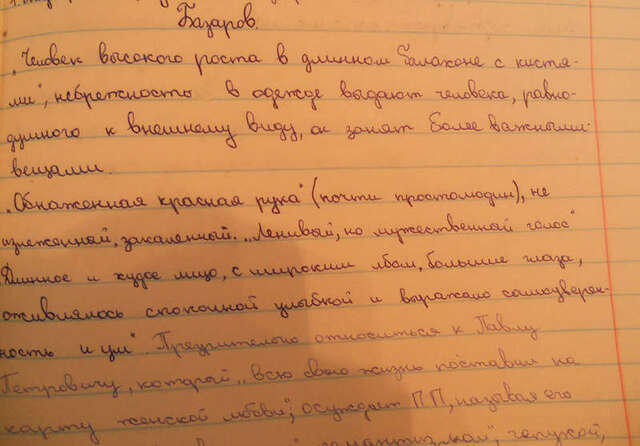 Базаров.
„Человек высокого роста в длинном балахоне с кистя-
ми", небрежность в одежде выдают человека, равно-
душного к внешнему виду, он занят более важными
вещами.
„Обнаженная красная рука" (почти простолюдин), не
изнеженный, закаленный. „Ленивый, но мужественный голос"
Длинное и худое лицо, с широким лбом, большие глаза,
оживлялось спокойной улыбкой и выражало самоуверен-
ность и ум" Презрительно относиться к Павлу
Петровичу, который „всю свою жизнь поставил на
карту женской любви", осуждает ПП, называя его
"романтизмом", чепухой,